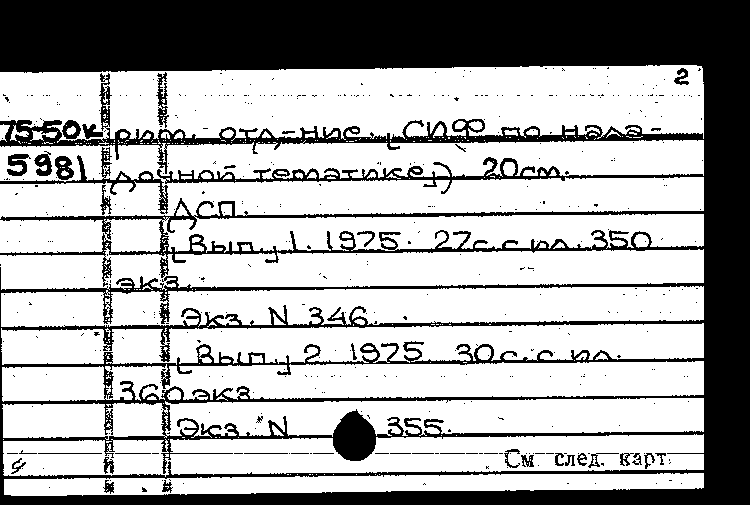 2
75-50к рит. отд-ние. [СИФ по нала-
5981 дочной тематике]) 20см.
ДСП.
[Вып.] 1. 1975. 27с. с ил. 350
экз.
Экз. N 346.
[Вып.] 2 1975 30с. с ил.
360 экз.
Экз. N 355.
См след. карт